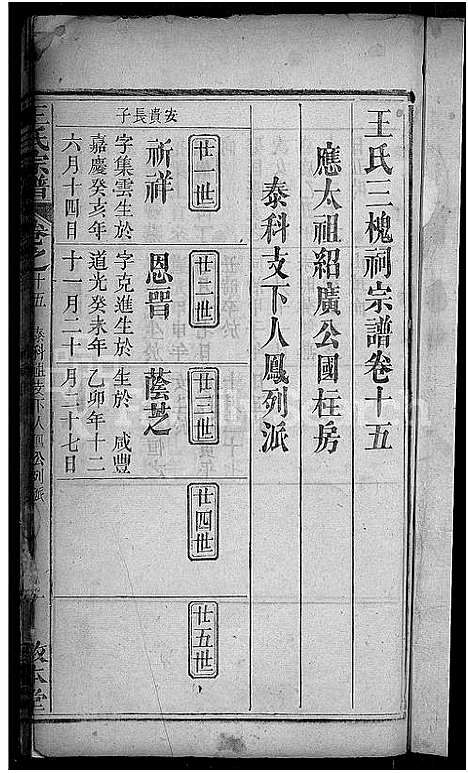 王氏三槐祠宗譜卷十五
應太祖紹廣公國柱房
泰科支下人鳳列派
廿一世
廿二世
廿三世
廿四世
廿五世
安貴長子
祈祥
字集雲生於
嘉慶癸亥年
六月十四日
恩晋
字克進生於
道光癸未年
十一月二十
蔭芝
生於 咸豐
乙卯年十二
月二十七日
王氏宗譜
卷之十五
泰科祖支下人鳳公列派